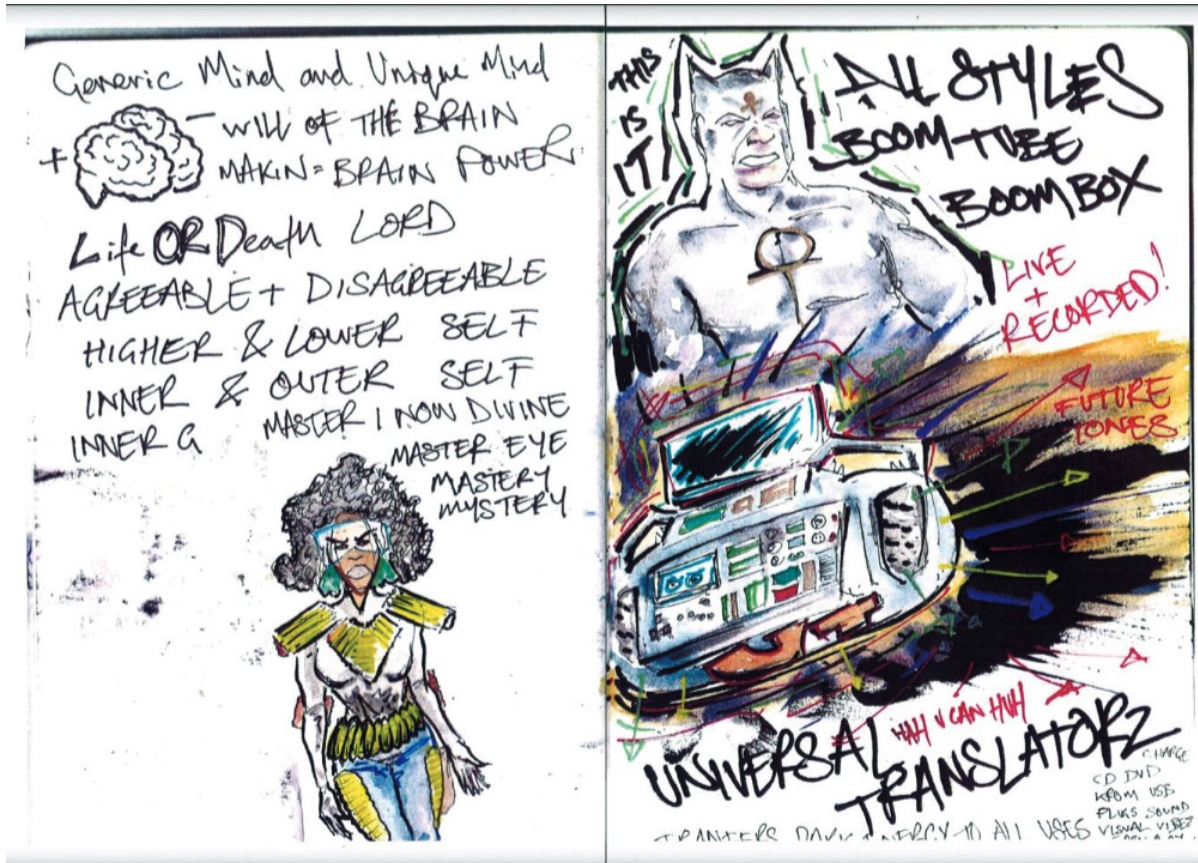 Generic Mind and Unique Mind
WILL OF THE BRAIN
MAKIN = BRAIN POWER
Life OR Death LORD
AGREEABLE + DISAGREEABLE
HIGHER & LOWER SELF
INNER & OUTER SELF
INNER G MASTER I NOW DIVINE
MASTER EYE
MASTERY
MYSTERY
THIS
IS
IT!
ALL STYLES
BOOM TUBE
BOOM BOX
LIVE
+
RECORDED!
FUTURE
TONES
HAH U CAN HUH
UNIVERSAL
TRANSLATORZ
CHARGE
CD DVD
USB
PLUGS SOUND
VISUAL VIBEZ
DARK ENERGY TO ALL USES